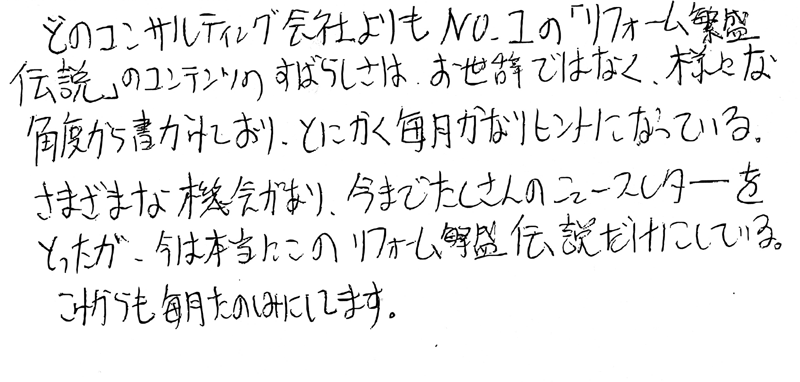 どのコンサルティング会社よりもNO.1の「リフォーム繁盛
伝説」のコンテンツのすばらしさは、お世辞ではなく、様々な
角度から書かれており、とにかく毎月かなりヒントになっている。
さまざまな機会があり、今までたくさんのニュースレターを
とったが、今は本当にこのリフォーム繁盛伝説だけにしている。
これからも毎月たのしみにしてます。